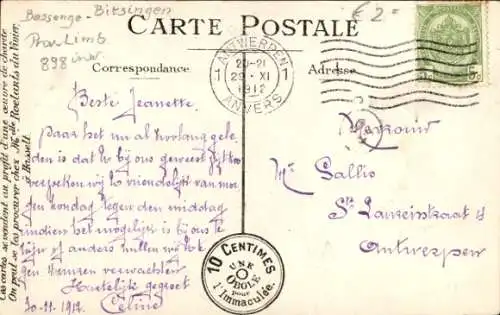 Bassenge - Bitsingen
Prov. Limb.
898 inw.
€ 2=
CARTE POSTALE
Correspondance
Adresse
ANTWERPEN
1 20-21 1
29 · XI
1912
ANVERS
Ces cartes se vendent au profit d'une œuvre de charité
On peut se les procurer chez Mlle Roelants du Vivier,
à Hasselt.
Beste Jeanette.
Daar het nu al zoo lang gele
den is dat ge bij ons geweest zijt
verzoeken wij u vriendelijk van mor
gen Zondag tegen den middag
indien het mogelijk is bij ons te
zijn of anders zullen wij te
gen verwachten
Hartelijk gegroet
30-11-1912. Celine
Mevrouw
Me Gallio
St Laureisstraat
Antwerpen
10 CENTIMES
UNE
OBOLE
pour
l'Immaculée.